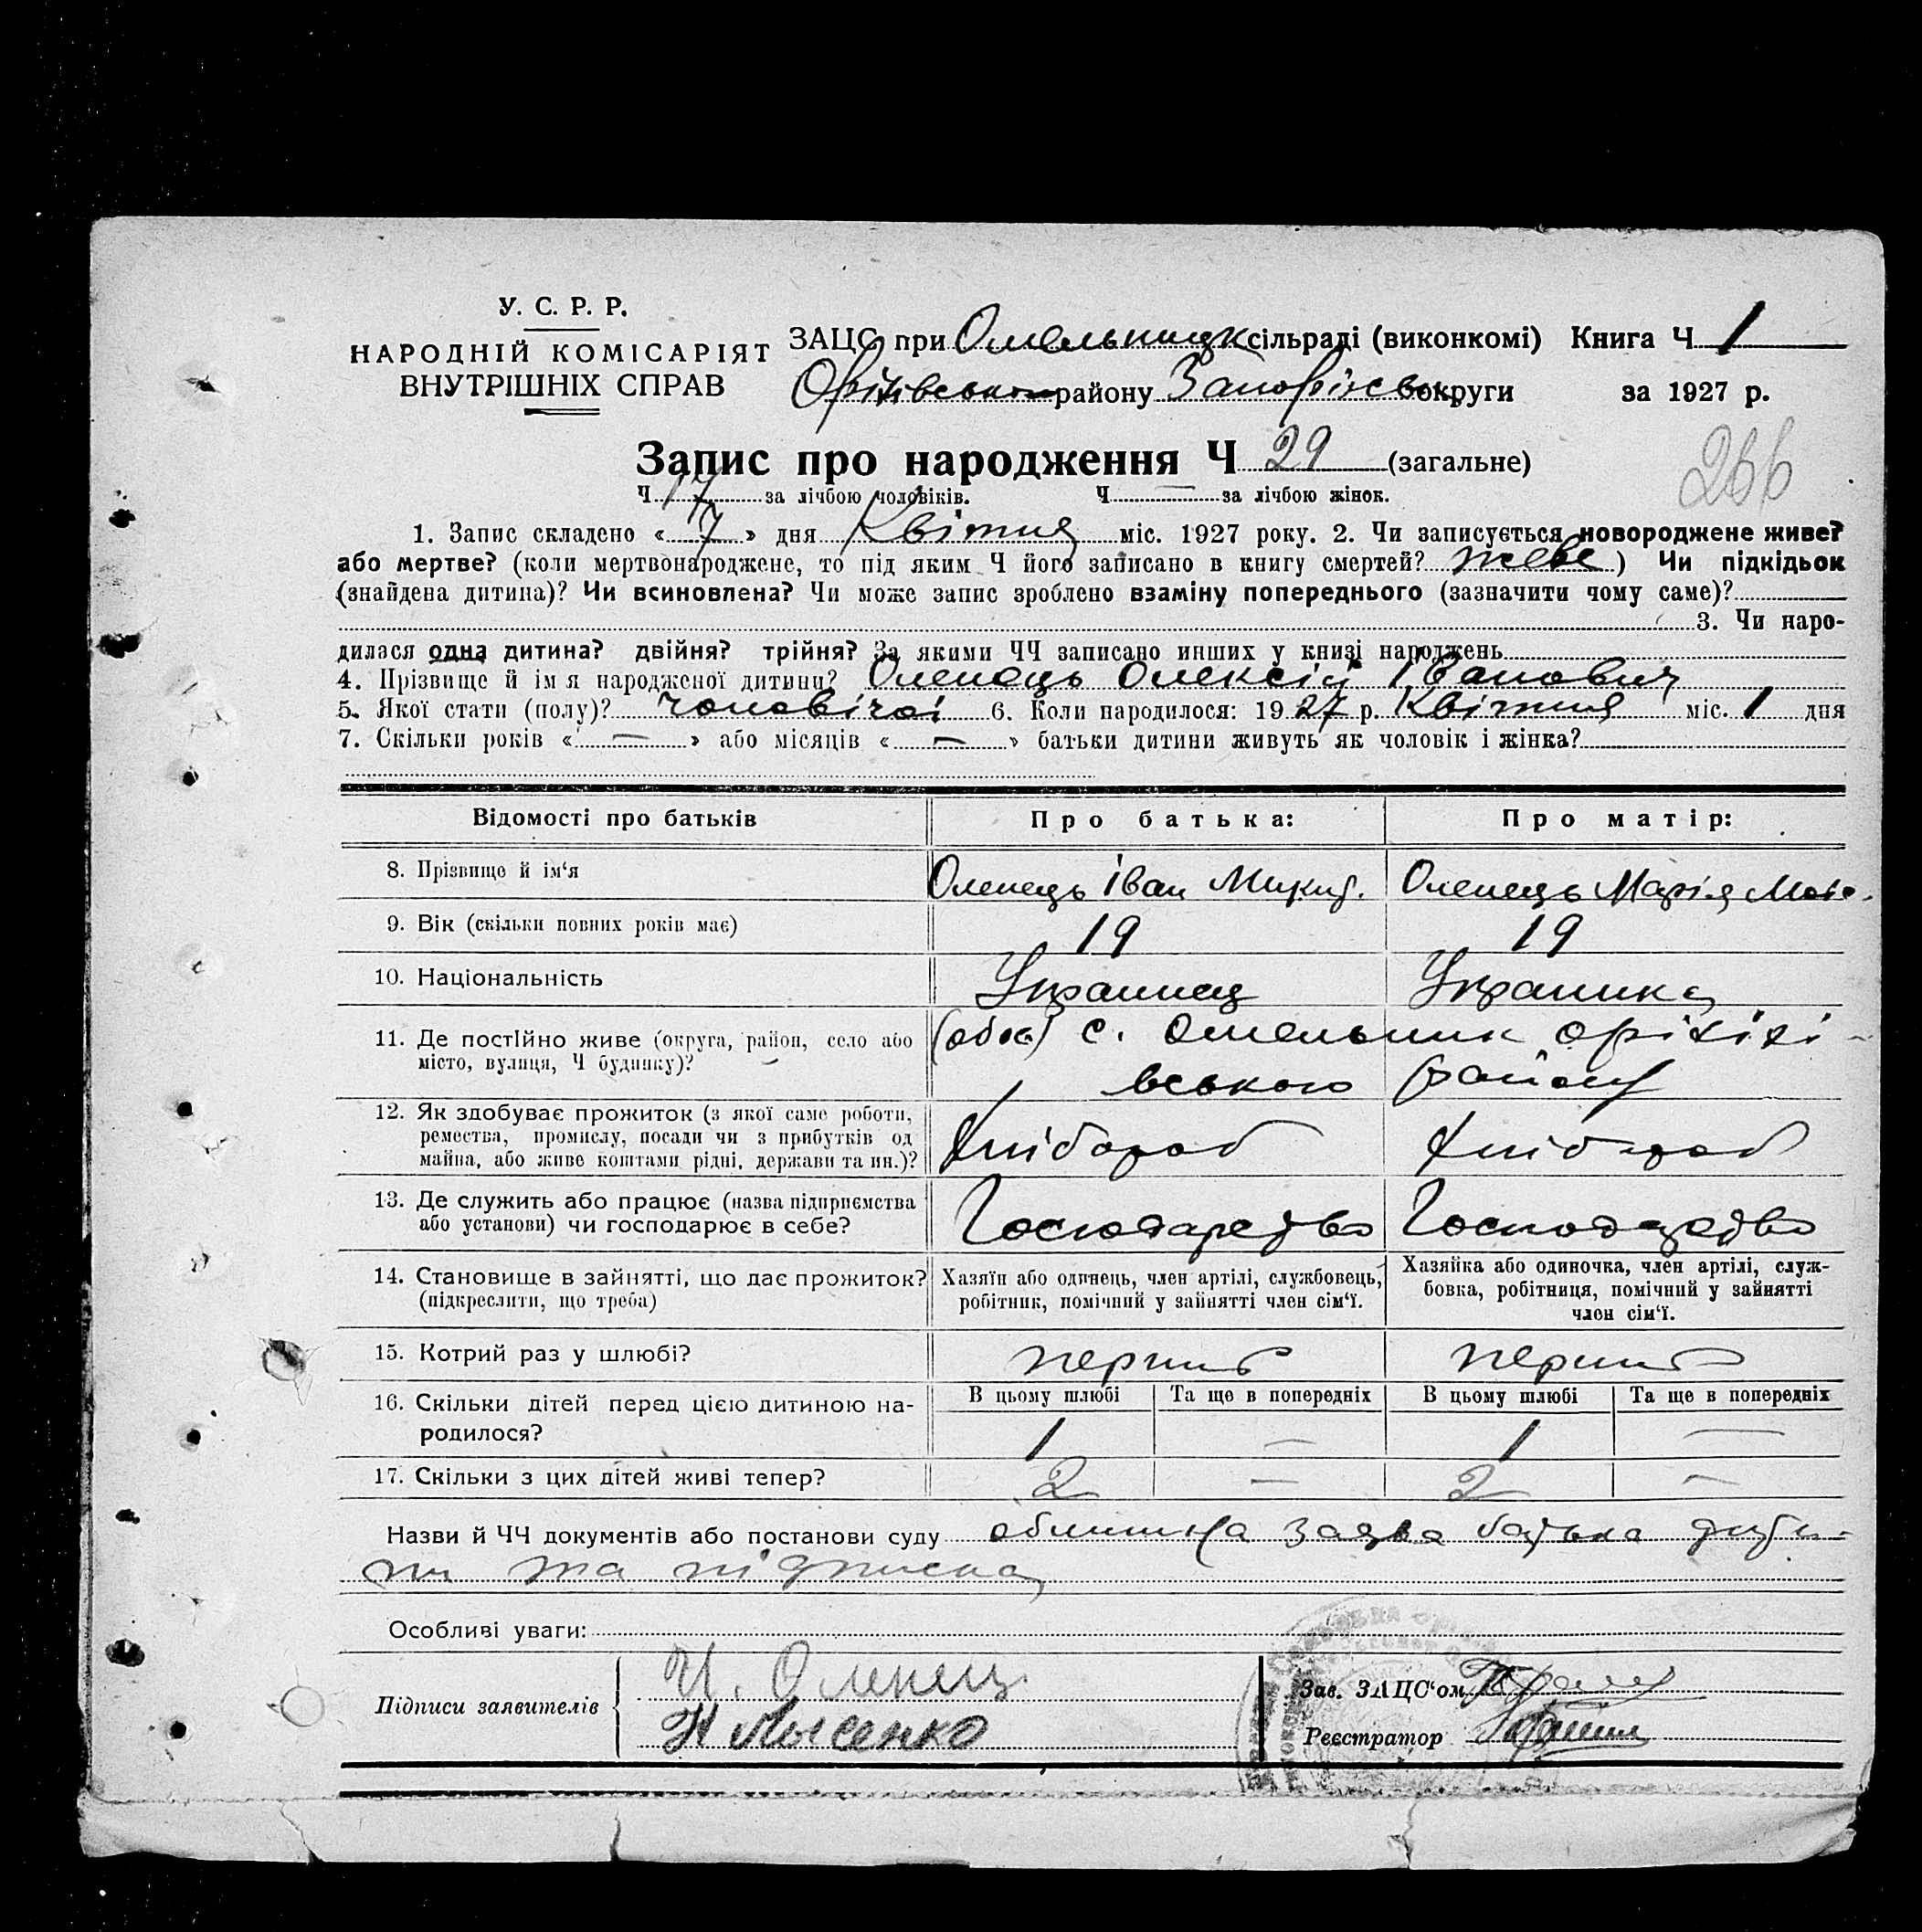 У. С. Р. Р.
НАРОДНІЙ КОМІСАРІЯТ
ВНУТРІШНІХ СПРАВ
ЗАЦС при Омельницьк сільраді (виконкомі) Книга Ч 1
Оріхівського району Запоріжсь округи за 1927 р.
Запис про народження Ч 29 (загальне)
266
Ч 17 за лічбою чоловіків. Ч — за лічбою жінок.
1. Запис складено « 7 » дня Квітня міс. 1927 року. 2. Чи записується новороджене живе?
або мертве? (коли мертвонароджене, то під яким Ч його записано в книгу смертей? живе ) Чи підкідьок
(знайдена дитина)? Чи всиновлена? Чи може запис зроблено взаміну попереднього (зазначити чому саме)?
3. Чи наро-
дилася одна дитина? двійня? трійня? За якими ЧЧ записано инших у книзі народжень
4. Прізвище й імя народженої дитини? Оленець Олексій Іванович
5. Якої стати (полу)? чоловічої 6. Коли народилося: 1927 р. Квітня міс. 1 дня
7. Скільки років « — » або місяців « — » батьки дитини живуть як чоловік і жінка?
Відомості про батьків Про батька: Про матір:
8. Прізвище й ім‘я Оленець Іван Микит. Оленець Марія
9. Вік (скільки повних років має) 19 19
10. Національність Українец Українка
11. Де постійно живе (округа, район, село або (обоє) с. Омельник Оріхі-
місто, вулиця, Ч будинку)? вського району
12. Як здобуває прожиток (з якої саме роботи,
ремества, промислу, посади чи з прибутків од Хлібороб Хлібороб
майна, або живе коштами рідні, держави та ин.)?
13. Де служить або працює (назва підприємства
або установи) чи господарює в себе? Господарство Господарство
14. Становище в зайнятті, що дає прожиток? Хазяїн або одинець, член артілі, службовець, Хазяйка або одиночка, член артілі, служ-
(підкреслити, що треба) робітник, помічний у зайнятті член сім‘ї. бовка, робітниця, помічний у зайнятті
член сім‘ї.
15. Котрий раз у шлюбі? перший перший
16. Скільки дітей перед цією дитиною на- В цьому шлюбі Та ще в попередніх В цьому шлюбі Та ще в попередніх
родилося? 1 — 1 —
17. Скільки з цих дітей живі тепер? 2 — 2 —
Назви й ЧЧ документів або постанови суду заява батька дити-
ни та підписка
Особливі уваги:
Підписи заявителів И. Оленец
Н Лысенко
Зав. ЗАЦС‘ом
Реєстратор